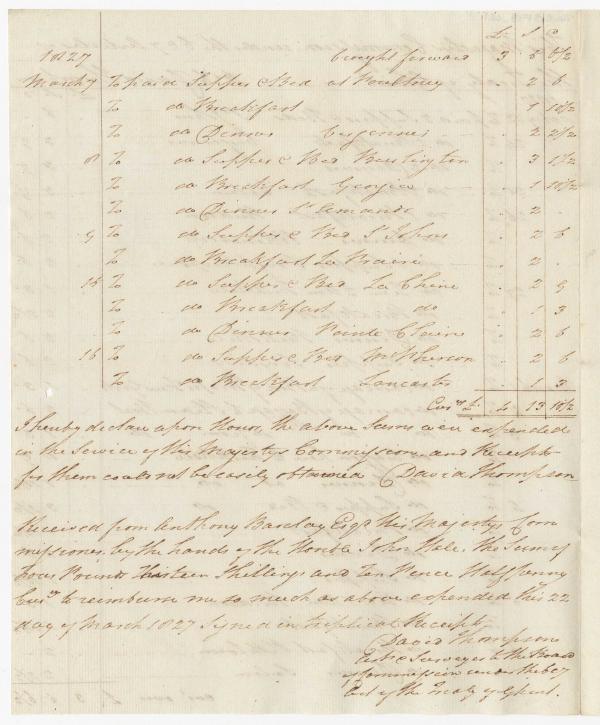 L. S D
1827 brought forward 3 8 8 1/2
March 7 To paid Supper & Bed at Poultney . 2 6
To do Breakfast . 1 10 1/2
To do Dinner Vergennes . 2 2 1/2
8 To do Supper & Bed Burlington . 3 1 1/2
To do Breakfast Georgia . 1 10 1/2
To do Dinner St Amands . 2 .
9 To do Supper & Bed St Johns . 2 6
To do Breakfast La Prairie . 2 .
15 To do Supper & Bed La Chine . 2 9
To do Breakfast do . 1 3
To do Dinner Pointe Claire . 2 6
16 To do Supper & Bed McPherson . 2 6
To do Breakfast Lancaster . 1 3
Curcy £. 4 13 10 1/2
I hereby declare upon Honor, the above Sums were expended
in the Service of His Majestys Commission, and Receipts
for them could not be easily obtained David Thompson
Received from Anthony Barclay Esqr His Majestys Com
missioner, by the hands of the Honble John Hale, the Sum of
Four Pounds Thirteen Shillings and Ten Pence Half penny
Curcy to reimburse me so much as above expended this 22
day of March 1827 Signed in triplicate Receipts
David Thompson
Astr & Surveyor to the Board
of Commission under the 6 & 7
Art. of the Treaty of Ghent.